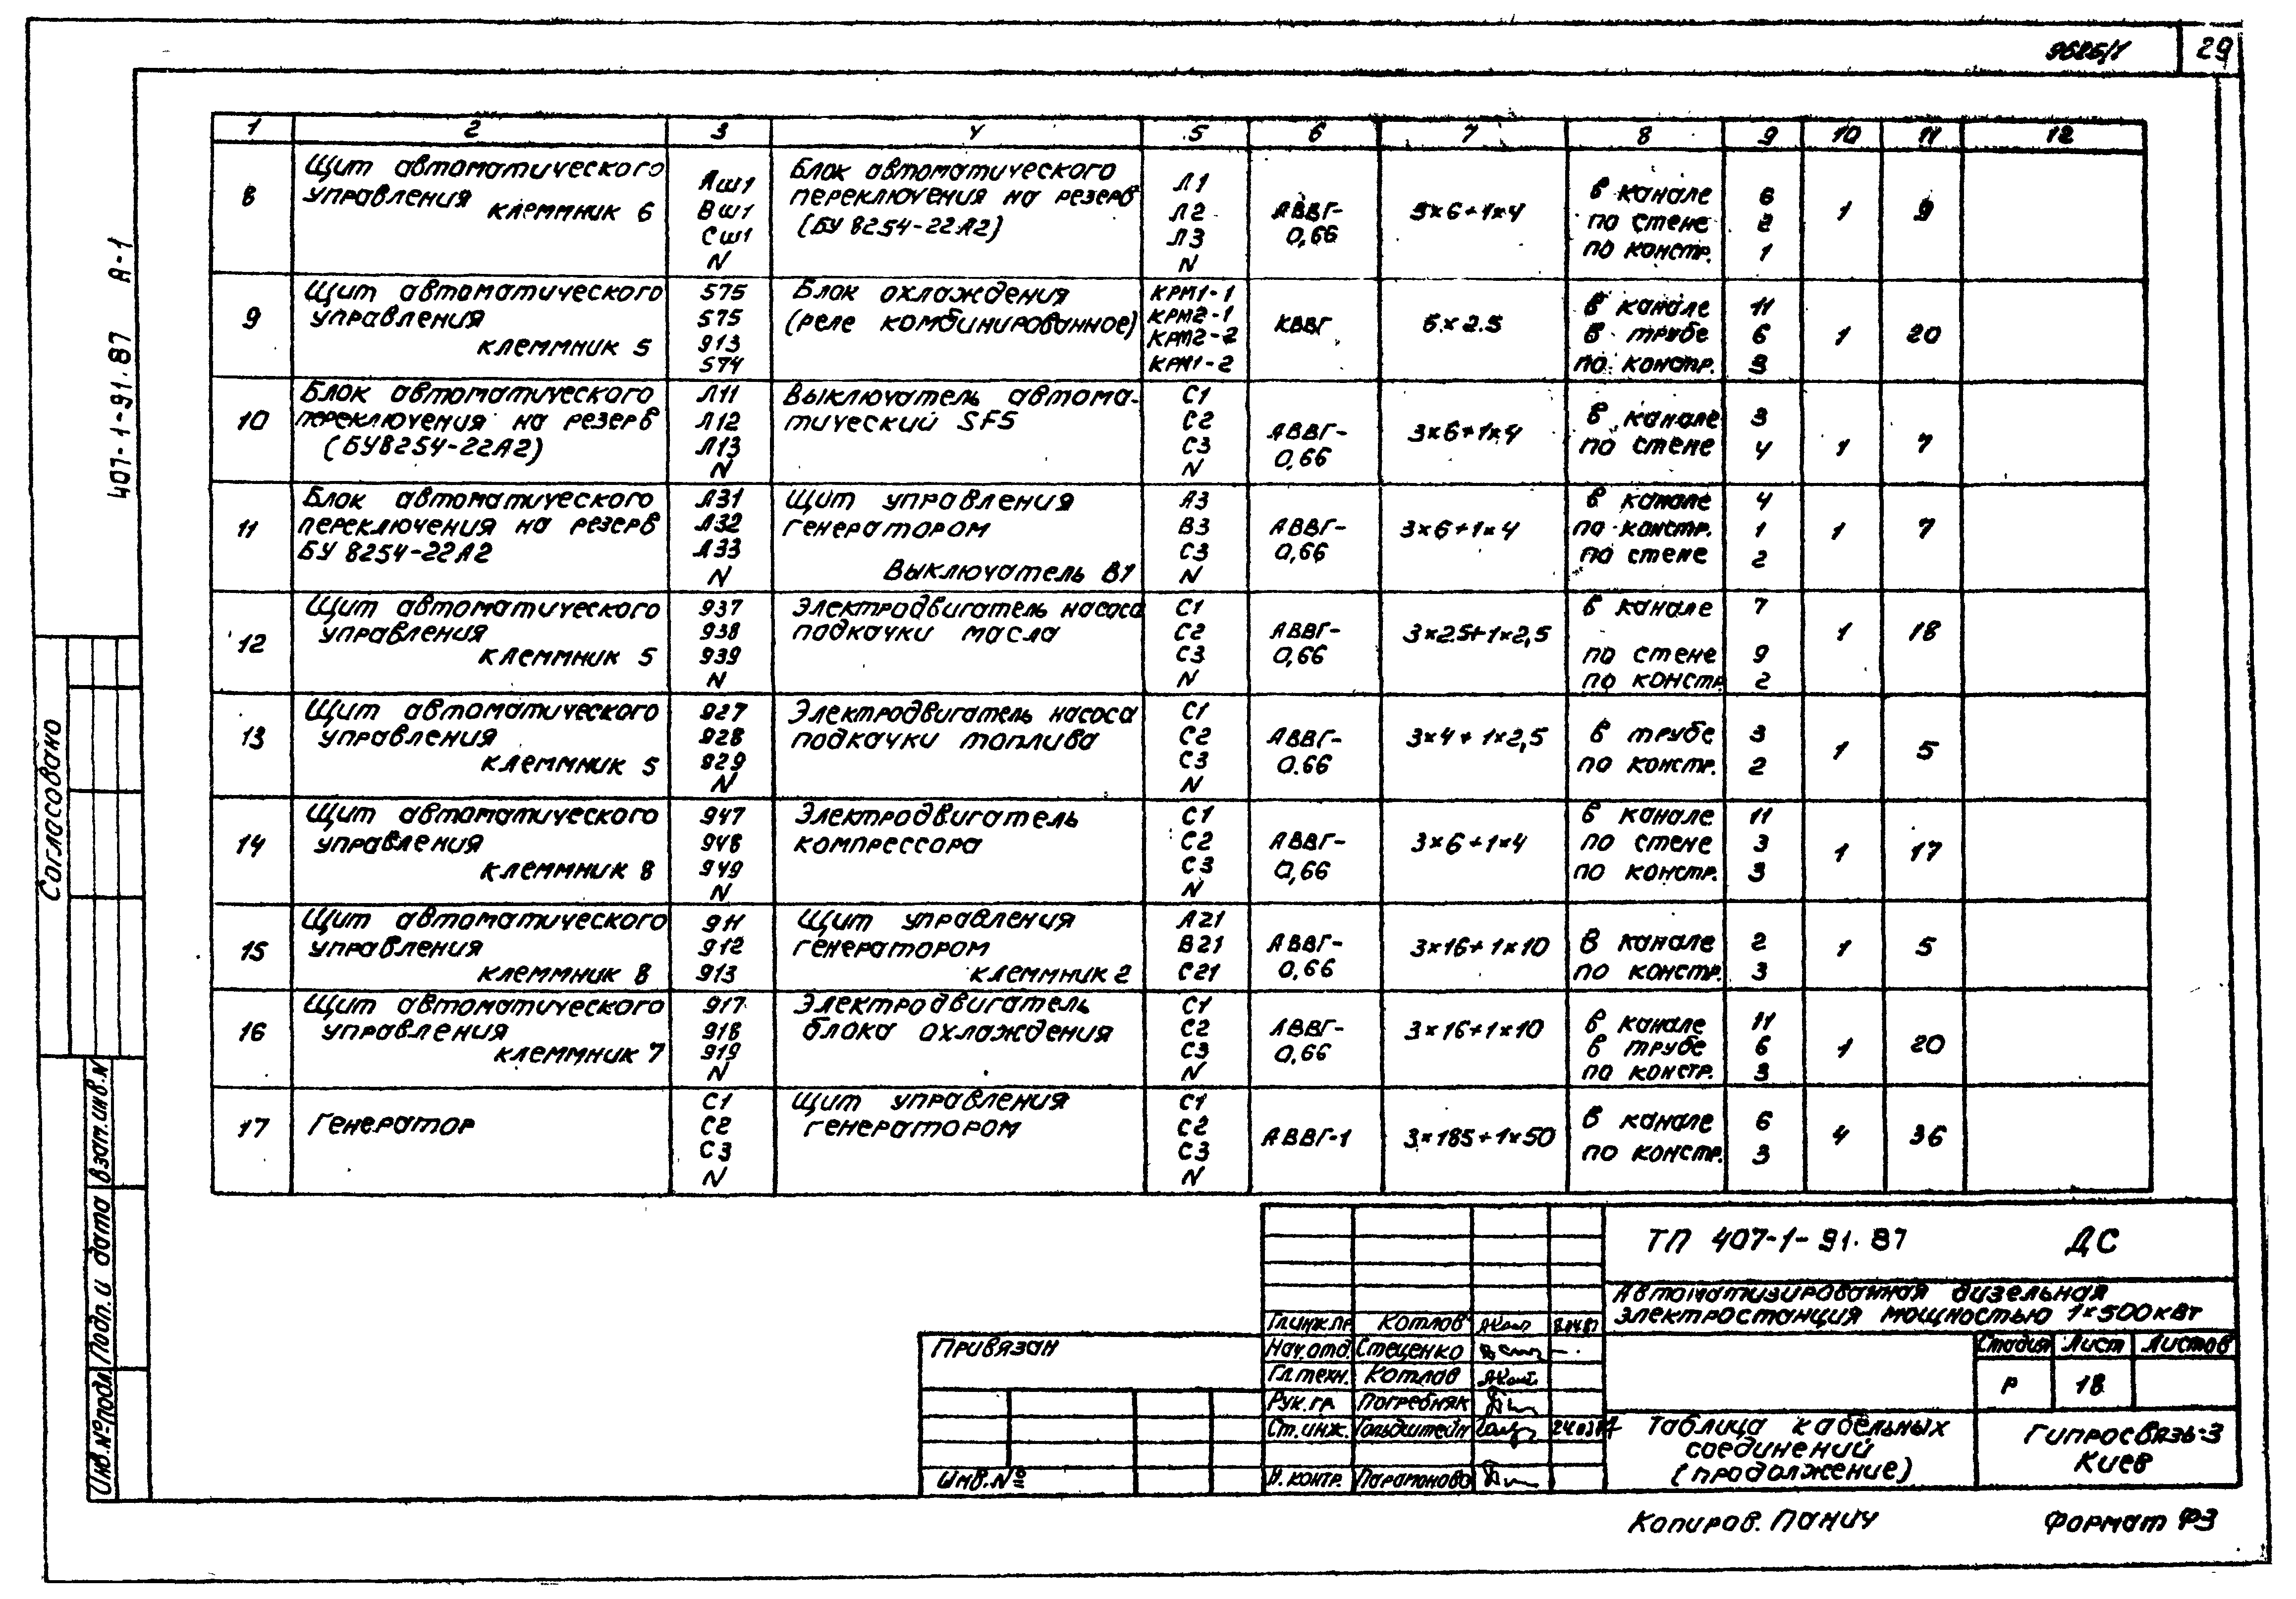 9626/1 29
407-1-91.87 А-1
1 2 3 4 5 6 7 8 9 10 11 12
8
Щит автоматического
управления клеммник 6
Аш1
Вш1
Сш1
N
Блок автоматического
переключения на резерв
(БУ 8254-22А2)
Л1
Л2
Л3
N
АВВГ-
0,66
3×6+1×4
в канале 6
по стене 2
по констр. 1
1
9
9
Щит автоматического
управления
клеммник 5
575
575
913
574
Блок охлаждения
(реле комбинированное)
КРМ1-1
КРМ2-1
КРМ2-2
КРМ1-2
КВВГ
5×2.5
в канале 11
в трубе 6
по констр. 3
1
20
10
Блок автоматического
переключения на резерв
(БУ8254-22А2)
Л11
Л12
Л13
N
Выключатель автома-
тический SF5
С1
С2
С3
N
АВВГ-
0,66
3×6+1×4
в канале 3
по стене 4
1
7
11
Блок автоматического
переключения на резерв
БУ 8254-22А2
Л31
Л32
Л33
N
Щит управления
генератором
Выключатель В1
А3
В3
С3
N
АВВГ-
0,66
3×6+1×4
в канале 4
по констр. 1
по стене 2
1
7
12
Щит автоматического
управления
клеммник 5
937
938
939
N
Электродвигатель насоса
подкачки масла
С1
С2
С3
N
АВВГ-
0,66
3×2.5+1×2,5
в канале 7
по стене 9
по констр 2
1
18
13
Щит автоматического
управления
клеммник 5
927
928
829
N
Электродвигатель насоса
подкачки топлива
С1
С2
С3
N
АВВГ-
0.66
3×4+1×2,5
в трубе 3
по констр. 2
1
5
14
Щит автоматического
управления
клеммник 8
947
948
949
N
Электродвигатель
компрессора
С1
С2
С3
N
АВВГ-
0,66
3×6+1×4
в канале 11
по стене 3
по констр. 3
1
17
15
Щит автоматического
управления
клеммник 8
911
912
913
Щит управления
генератором
клеммник 2
А21
В21
С21
АВВГ-
0,66
3×16+1×10
В канале 2
по констр. 3
1
5
16
Щит автоматического
управления
клеммник 7
917
918
919
N
Электродвигатель
блока охлаждения
С1
С2
С3
N
АВВГ-
0,66
3×16+1×10
в канале 11
в трубе 6
по констр. 3
1
20
17
Генератор
С1
С2
С3
N
Щит управления
генератором
С1
С2
С3
N
АВВГ-1
3×185+1×50
в канале 6
по констр. 3
4
36
Согласовано
Взам.инв.N
Подп. и дата
Инв.№подл
Привязан
Инв.№
Гл.инж.пр Котлов
Нач.отд. Стеценко
Гл.техн. Котлов
Рук.гр Погребняк
Ст.инж. Гольдштейн
Н.контр. Парамонова
ТП 407-1-91.87 ДС
Автоматизированная дизельная
электростанция мощностью 1×500кВт
Стадия Лист Листов
Р 18
Таблица кабельных
соединений
(продолжение)
Гипросвязь-3
Киев
Копиров. Панич Формат Ф3